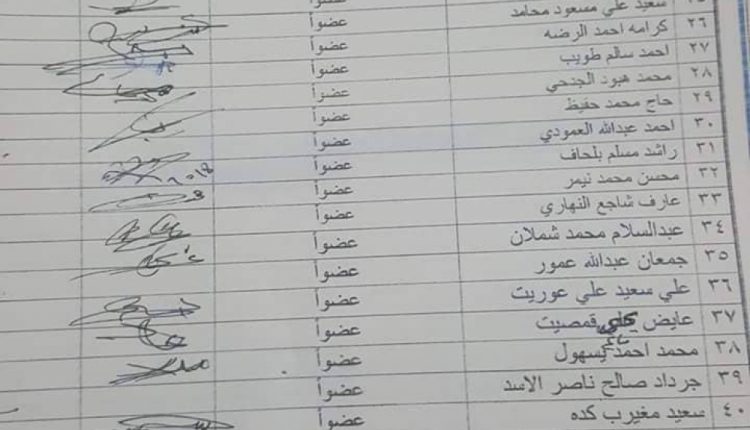 سعيد علي مسعود محامد عضواً
٢٦ كرامه احمد الرضه عضواً
٢٧ احمد سالم طويب عضواً
٢٨ محمد هبود الجنحي عضواً
٢٩ حاج محمد حفيظ عضواً
٣٠ احمد عبدالله العمودي عضواً
٣١ راشد مسلم بلحاف عضواً
٣٢ محسن محمد نيمر عضواً
٣٣ عارف شاجع النهاري عضواً
٣٤ عبدالسلام محمد شملان عضواً
٣٥ جمعان عبدالله عمور عضواً
٣٦ علي سعيد علي عوريت عضواً
٣٧ عايض علي قمصيت عضواً
٣٨ محمد احمد يسهول عضواً
٣٩ جرداد صالح ناصر الاسد عضواً
٤٠ سعيد مغيرب كده عضواً